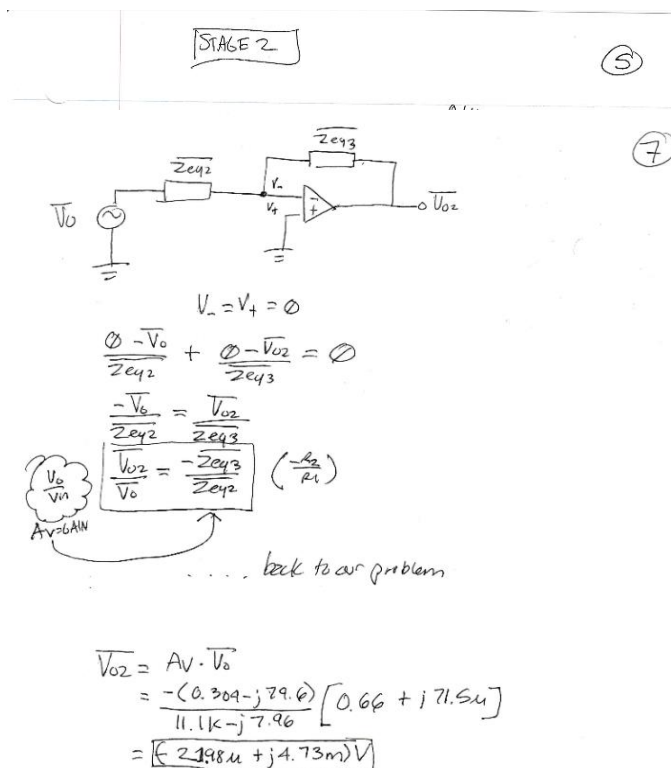 STAGE 2
5
7
Zeq2
Zeq3
V-
V+
-
+
V0
V02
V- = V+ = 0
0 - V0 / Zeq2 + 0 - V02 / Zeq3 = 0
-V0 / Zeq2 = V02 / Zeq3
V0 / Vin
AV=GAIN
V02 / V0 = -Zeq3 / Zeq2 (-R2 / R1)
..... back to our problem
V02 = AV · V0
= -(0.304-j79.6) / 11.1K-j7.96 [0.66 + j71.5u]
= (-2.198u + j4.73m)V